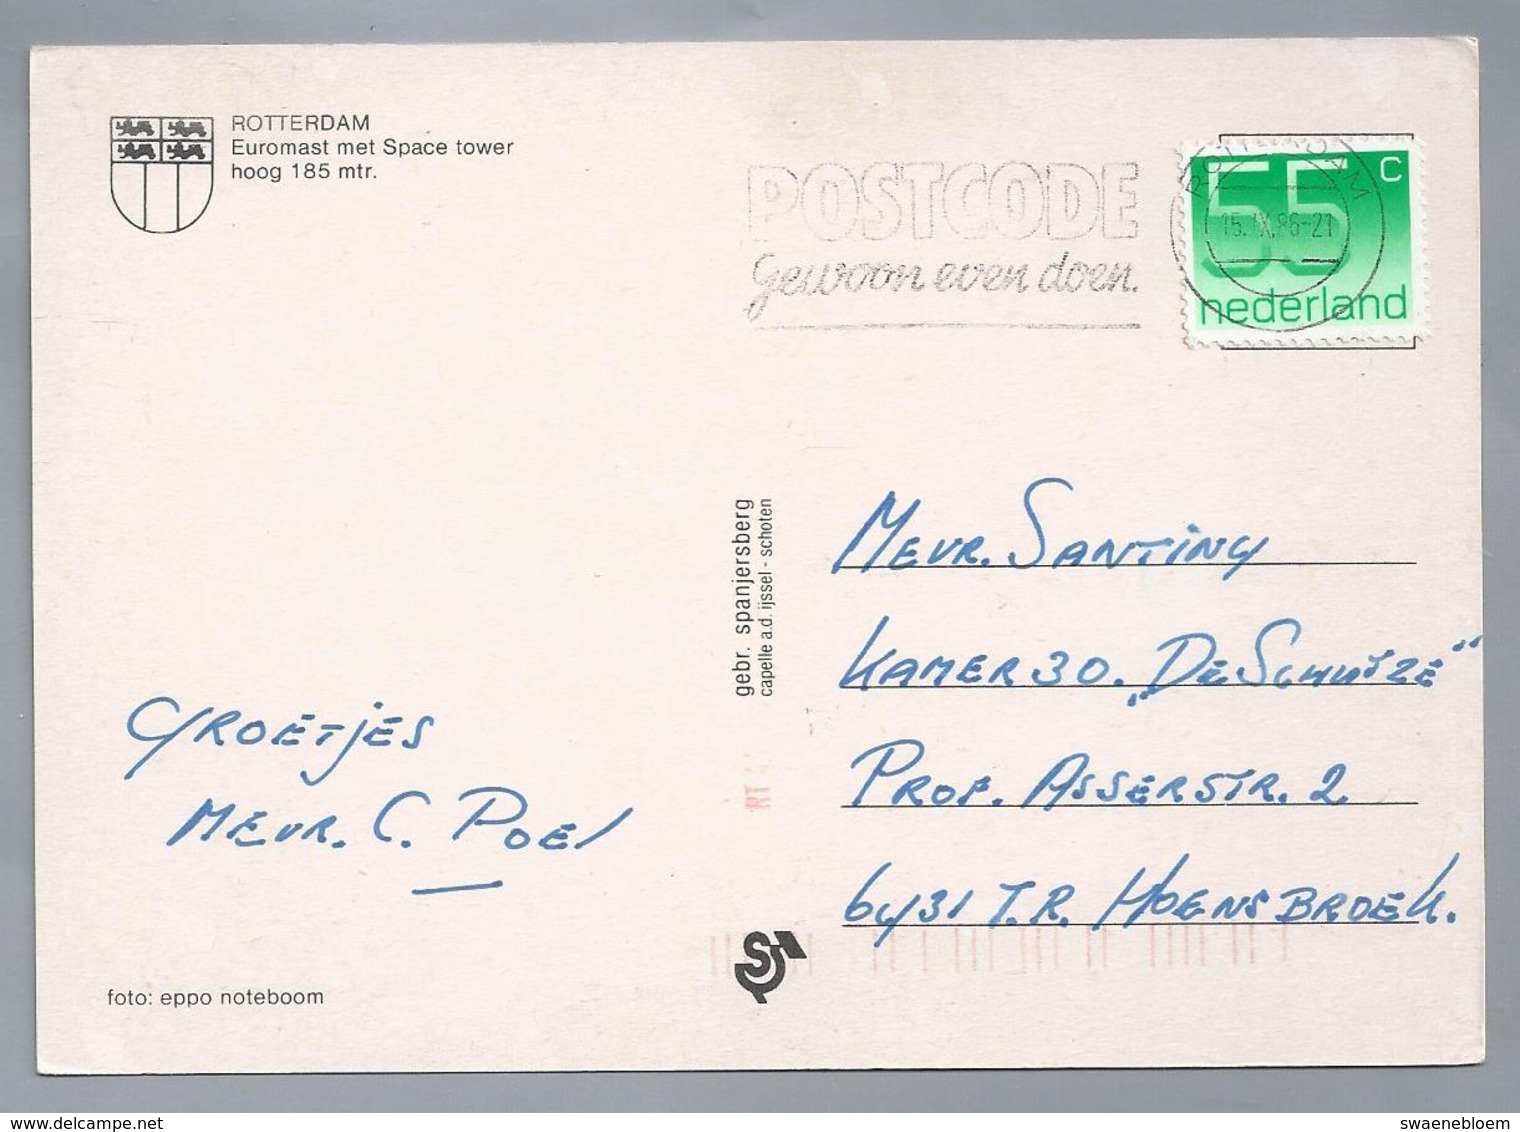 ROTTERDAM
Euromast met Space tower
hoog 185 mtr.
POSTCODE
gewoon even doen.
ROTTERDAM
15.IX.86-21
55 c
nederland
gebr. spanjersberg
capelle a.d. ijssel - schoten
Mevr. Santing
Kamer 30. „De Schutze"
Prof. Asserstr. 2
6431 T.R. Hoensbroek.
Groetjes
Mevr. C. Poel
RT
S
foto: eppo noteboom
www.delcampe.net
swaenebloem